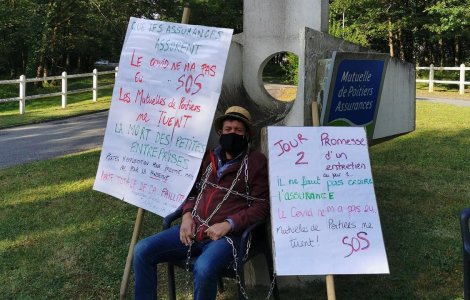 QUE LES ASSURANCES
ASSURENT
LE COVID NE M'A PAS
EU SOS
LES MUTUELLES DE POITIERS
ME TUENT
LA MORT DES PETITES
ENTREPRISES
PERTE TOTALE DE C.A. FAILLITE
JOUR PROMESSE
2 D'un
entretien
IL NE FAUT PAS CROIRE
L'ASSURANCE
Le Covid ne m'a pas eu
Mutuelles de Poitiers me
tuent!
SOS
Mutuelle de Poitiers
Assurances